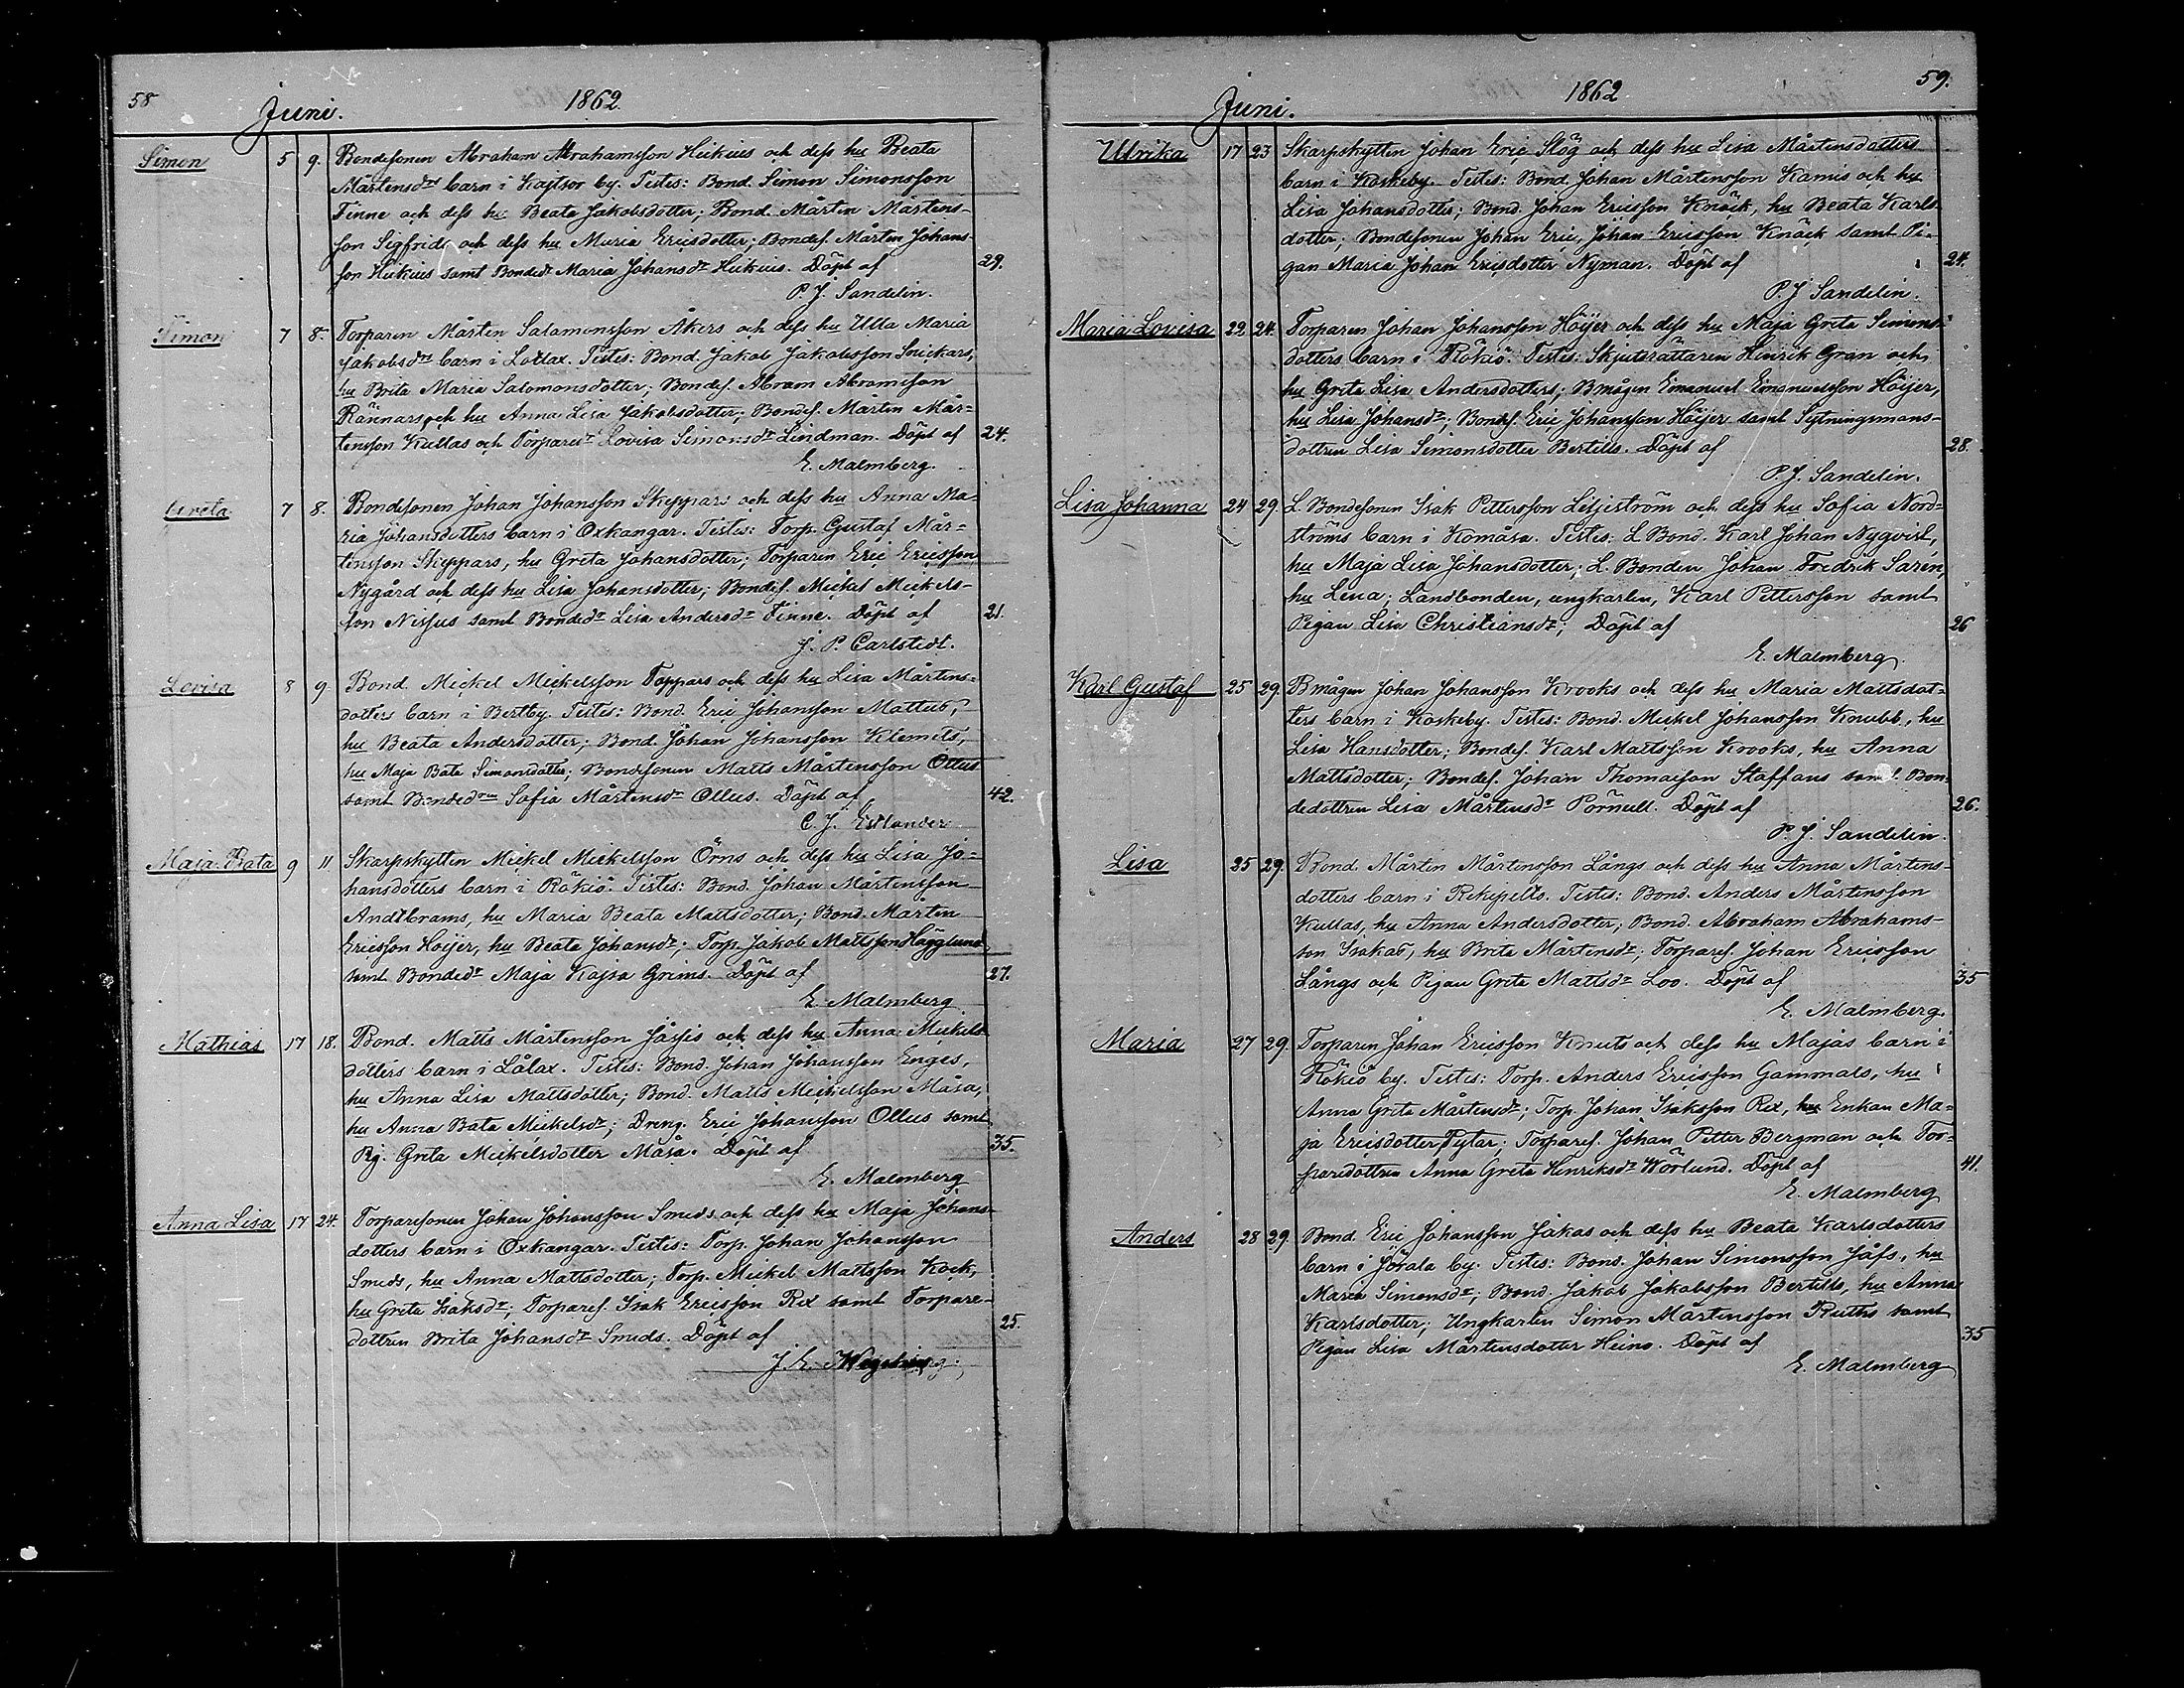 58
Juni.
1862.
Simon 5 9. Bondesonen Abraham Abrahamsson Heikius och dess hu Beata
Mårtensdrs barn i Kajtsor by. Testes: Bond. Simon Simonsson
Finne och dess hu Beata Jakobsdotter; Bond. Mårten Mårtens-
son Sigfrids och dess hu Maria Ericsdotter; Bondes. Mårten Johans-
son Heikius samt Bonded. Maria Johansdr Heikius. Döpt af 29.
P. J. Sandelin.
Simon 7 8. Torparen Mårten Salamonsson Åkers och dess hu Ulla Maria
Jakobsdrs barn i Lotlax. Testes: Bond. Jakob Jakobsson Snickars,
hu Brita Maria Salomonsdotter; Bondes. Abram Abramsson
Rännars och hu Anna Lisa Jakobsdotter; Bondes. Mårten Mår-
tensson Kullas och Torpared. Lovisa Simonsdr Lindman. Döpt af 24.
E. Malmberg.
Greta 7 8. Bondesonen Johan Johansson Skeppars och dess hu Anna Ma-
ria Johansdotters barn i Oxkangar. Testes: Torp. Gustaf Mår-
tensson Skeppars, hu Greta Johansdotter; Torparen Eric Ericsson
Nygård och dess hu Lisa Johansdotter; Bondes. Mickel Mickels-
son Nissus samt Bonded. Lisa Andersdr Finne. Döpt af 21.
J. P. Carlstedt.
Lovisa 8 9. Bond. Mickel Mickelsson Toppars och dess hu Lisa Mårtens-
dotters barn i Bertby. Testes: Bond. Eric Johansson Mattus,
hu Beata Andersdotter; Bond. Johan Johansson Klemets,
hu Maja Bata Simonsdotter; Bondesonen Matts Mårtensson Ollus
samt Bonded. Sofia Mårtensdr Ollus. Döpt af 42.
C. J. Estlander
Maja Bata 9 11 Skarpskytten Mickel Mickelsson Örns och dess hu Lisa Jo-
hansdotters barn i Rökiö. Testes: Bond. Johan Mårtensson
Andlbrams, hu Maria Beata Mattsdotter; Bond. Mårten
Ericsson Höijer, hu Beata Johansdr; Torp. Jakob Mattsson Hägglund
samt Bonded. Maja Kajsa Grims. Döpt af 27.
E. Malmberg
Mathias 17 18. Bond. Matts Mårtensson Jåsjis och dess hu Anna Mickels-
dotters barn i Lålax. Testes: Bond. Johan Johansson Enges,
hu Anna Lisa Mattsdotter; Bond. Matts Mickelsson Måsa,
hu Anna Bata Mickelsdr; Dreng. Eric Johansson Ollus samt
Pig. Greta Mickelsdotter Måsa. Döpt af 35.
E. Malmberg
Anna Lisa 17 24. Torparesonen Johan Johansson Smeds och dess hu Maja Johans-
dotters barn i Oxkangar. Testes: Torp. Johan Johansson
Smeds, hu Anna Mattsdotter; Torp. Mickel Mattsson Kock,
hu Greta Isaksdr; Torpares. Isak Ericsson Rex samt Torpare-
dottren Brita Johansdr Smeds. Döpt af 25.
J. E.
59.
Juni.
1862
Ulrika 17 23 Skarpskytten Johan Eric Slög och dess hu Lisa Mårtensdotters
barn i Koskeby. Testes: Bond. Johan Mårtensson Kamis och hu
Lisa Johansdotter; Bond. Johan Ericsson Knäck, hu Beata Karls-
dotter; Bondesonen Johan Eric, Johan Ericsson Knäck samt Pi-
gan Maria Johan Ericsdotter Nyman. Döpt af 24.
P. J. Sandelin.
Maria Lovisa 22. 24. Torparen Johan Johansson Höijer och dess hu Maja Greta Simons-
dotters barn i Rökiö. Testes: Skjutsrättaren Henrik Gran och
hu Greta Lisa Andersdotters; Bmågen Emanuel Emanuelsson Höijer,
hu Lisa Johansdr; Bondes. Eric Johansson Höijer samt Sytningsmans-
dottren Lisa Simonsdotter Bertills. Döpt af 28.
P. J. Sandelin.
Lisa Johanna 24 29 L. Bondesonen Isak Pettersson Liljeström och dess hu Sofia Nord-
ströms barn i Komåsa. Testes: L Bond. Karl Johan Nyqvist,
hu Maja Lisa Johansdotter; L. Bonden Johan Fredrik Sarén,
hu Lena; Landbonden, ungkarlen, Karl Pettersson samt
Pigan Lisa Christiansdr; Döpt af 26
E. Malmberg.
Karl Gustaf 25 29. Bmågen Johan Johansson Krooks och dess hu Maria Mattsdot-
ters barn i Koskeby. Testes: Bond. Mickel Johansson Knubb, hu
Lisa Hansdotter; Bondes. Karl Mattsson Krooks, hu Anna
Mattsdotter; Bondes. Johan Thomasson Staffans samt Bon-
dedottren Lisa Mårtensdr Pörnull. Döpt af 26.
P. J. Sandelin.
Lisa 25 29. Bond. Mårten Mårtensson Långs och dess hu Anna Mårtens-
dotters barn i Rekipelto. Testes: Bond. Anders Mårtensson
Kullas, hu Anna Andersdotter; Bond. Abraham Abrahams-
son Isakas, hu Brita Mårtensdr; Torpares. Johan Ericsson
Långs och Pigan Greta Mattsdr Loo. Döpt af 35
E. Malmberg.
Maria 27 29. Torparen Johan Ericsson Knuts och dess hu Majas barn i
Rökiö by. Testes: Torp. Anders Ericsson Gammals, hu
Anna Greta Mårtensdr; Torp. Johan Isaksson Rex, hu Enkan Ma-
ja Ericsdotter Pytar; Torpares. Johan Petter Bergman och Tor-
paredottren Anna Greta Henriksdr Wörlund. Döpt af 41.
E. Malmberg
Anders 28 29 Bond. Eric Johansson Jakas och dess hu Beata Karlsdotters
barn i Jörala by. Testes: Bond. Johan Simonsson Jåfs, hu
Maria Simonsdr; Bond. Jakob Jakobsson Bertills, hu Anna
Karlsdotter; Ungkarlen Simon Mårtensson Ruths samt
Pigan Lisa Mårtensdotter Heino. Döpt af 35
E. Malmberg